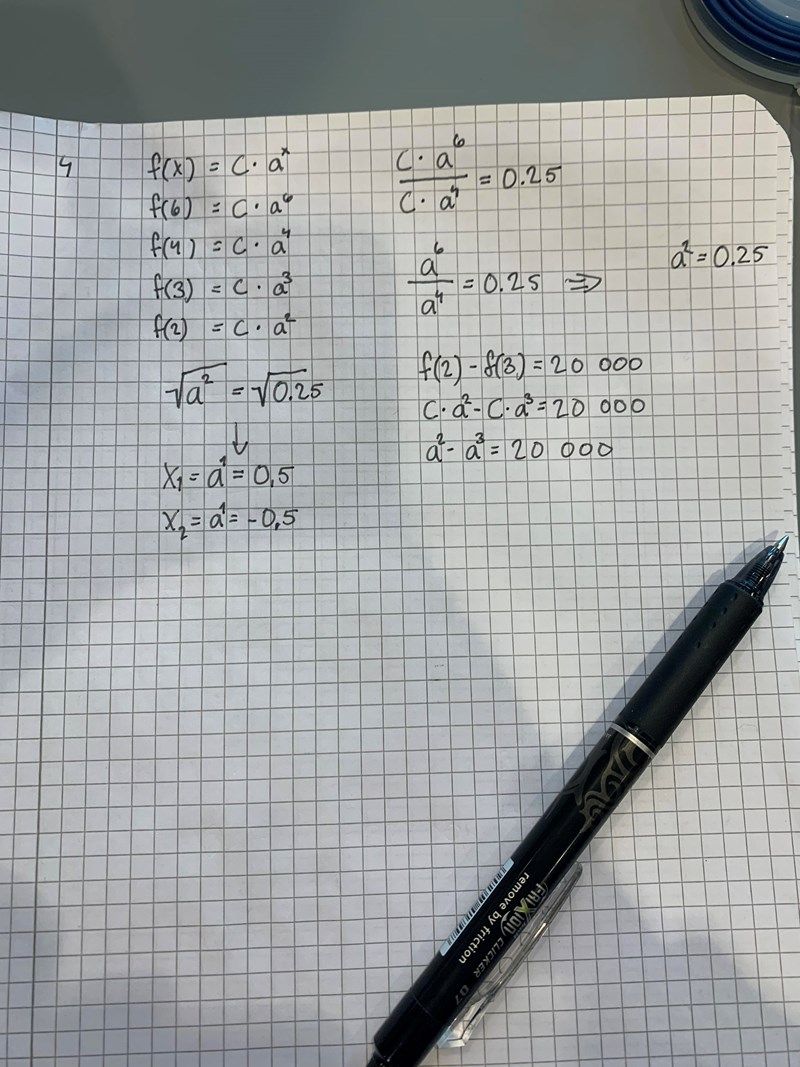 4
f(x) = C · a^x
f(6) = C · a^6
f(4) = C · a^4
f(3) = C · a^3
f(2) = C · a^2
√a^2 = √0.25
↓
x₁ = a^1 = 0,5
x₂ = a^1 = -0,5
C · a^6 / C · a^4 = 0.25
a^6 / a^4 = 0.25 ⇒ a^2 = 0.25
f(2) - f(3) = 20 000
C · a^2 - C · a^3 = 20 000
a^2 - a^3 = 20 000
FRIXION CLICKER 07
remove by friction